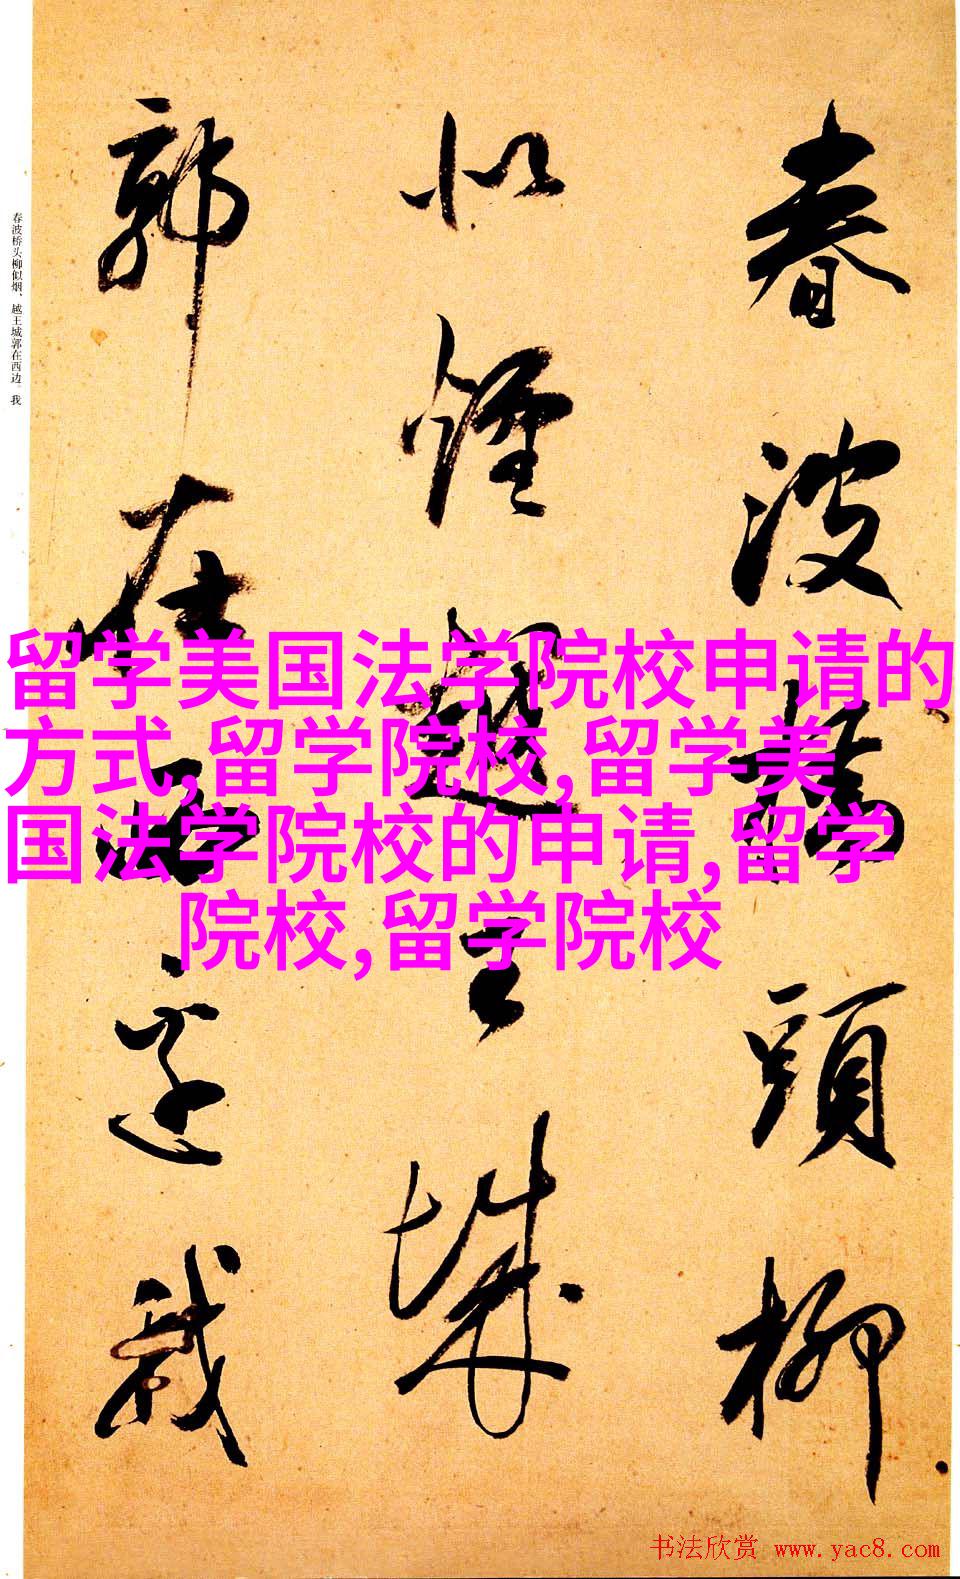 春波橋頭柳
似煙越王城
郭在西邊我
春波桥头柳似烟、越王城郭在西边。我
留学美国法学院校申请的
方式,留学院校,留学美
国法学院校的申请,留学
院校,留学院校
书法欣赏 www.yac8.com